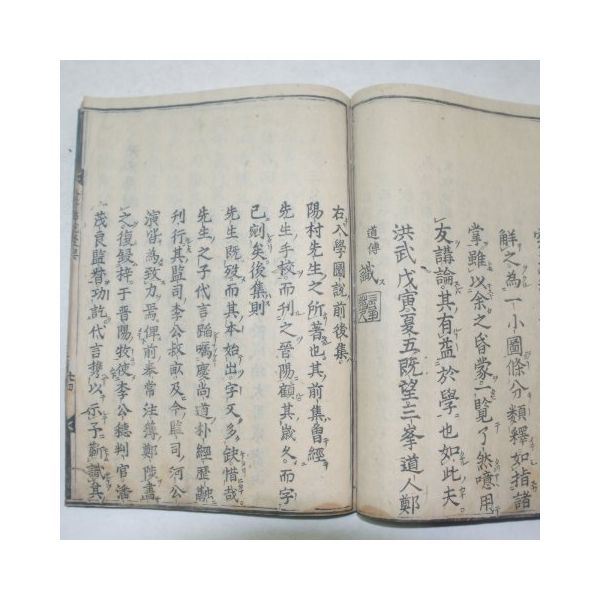 解之為一小圖條分類釋如指諸
掌雖以余之昏蒙一覧了然噫用
友講論其有益於學也如此夫
洪武戊寅夏五既望三峯道人鄭
道傳 識
右入學圖説前後集
陽村先生之所著也其前集曾經
先生手校而刊之晉陽顧其歲久而字
已刓矣後集則
先生既歿而其本始出字又多缺惜哉
先生之子代言蹈囑慶尚道朴經歷融
刊行其監司李公叔畝及今監司河公
演皆為致力焉俾前奉常注薄鄭陟書
之復録梓于晋陽牧使李公穂判官潘
茂良監督功訖代言携以示予勸識其